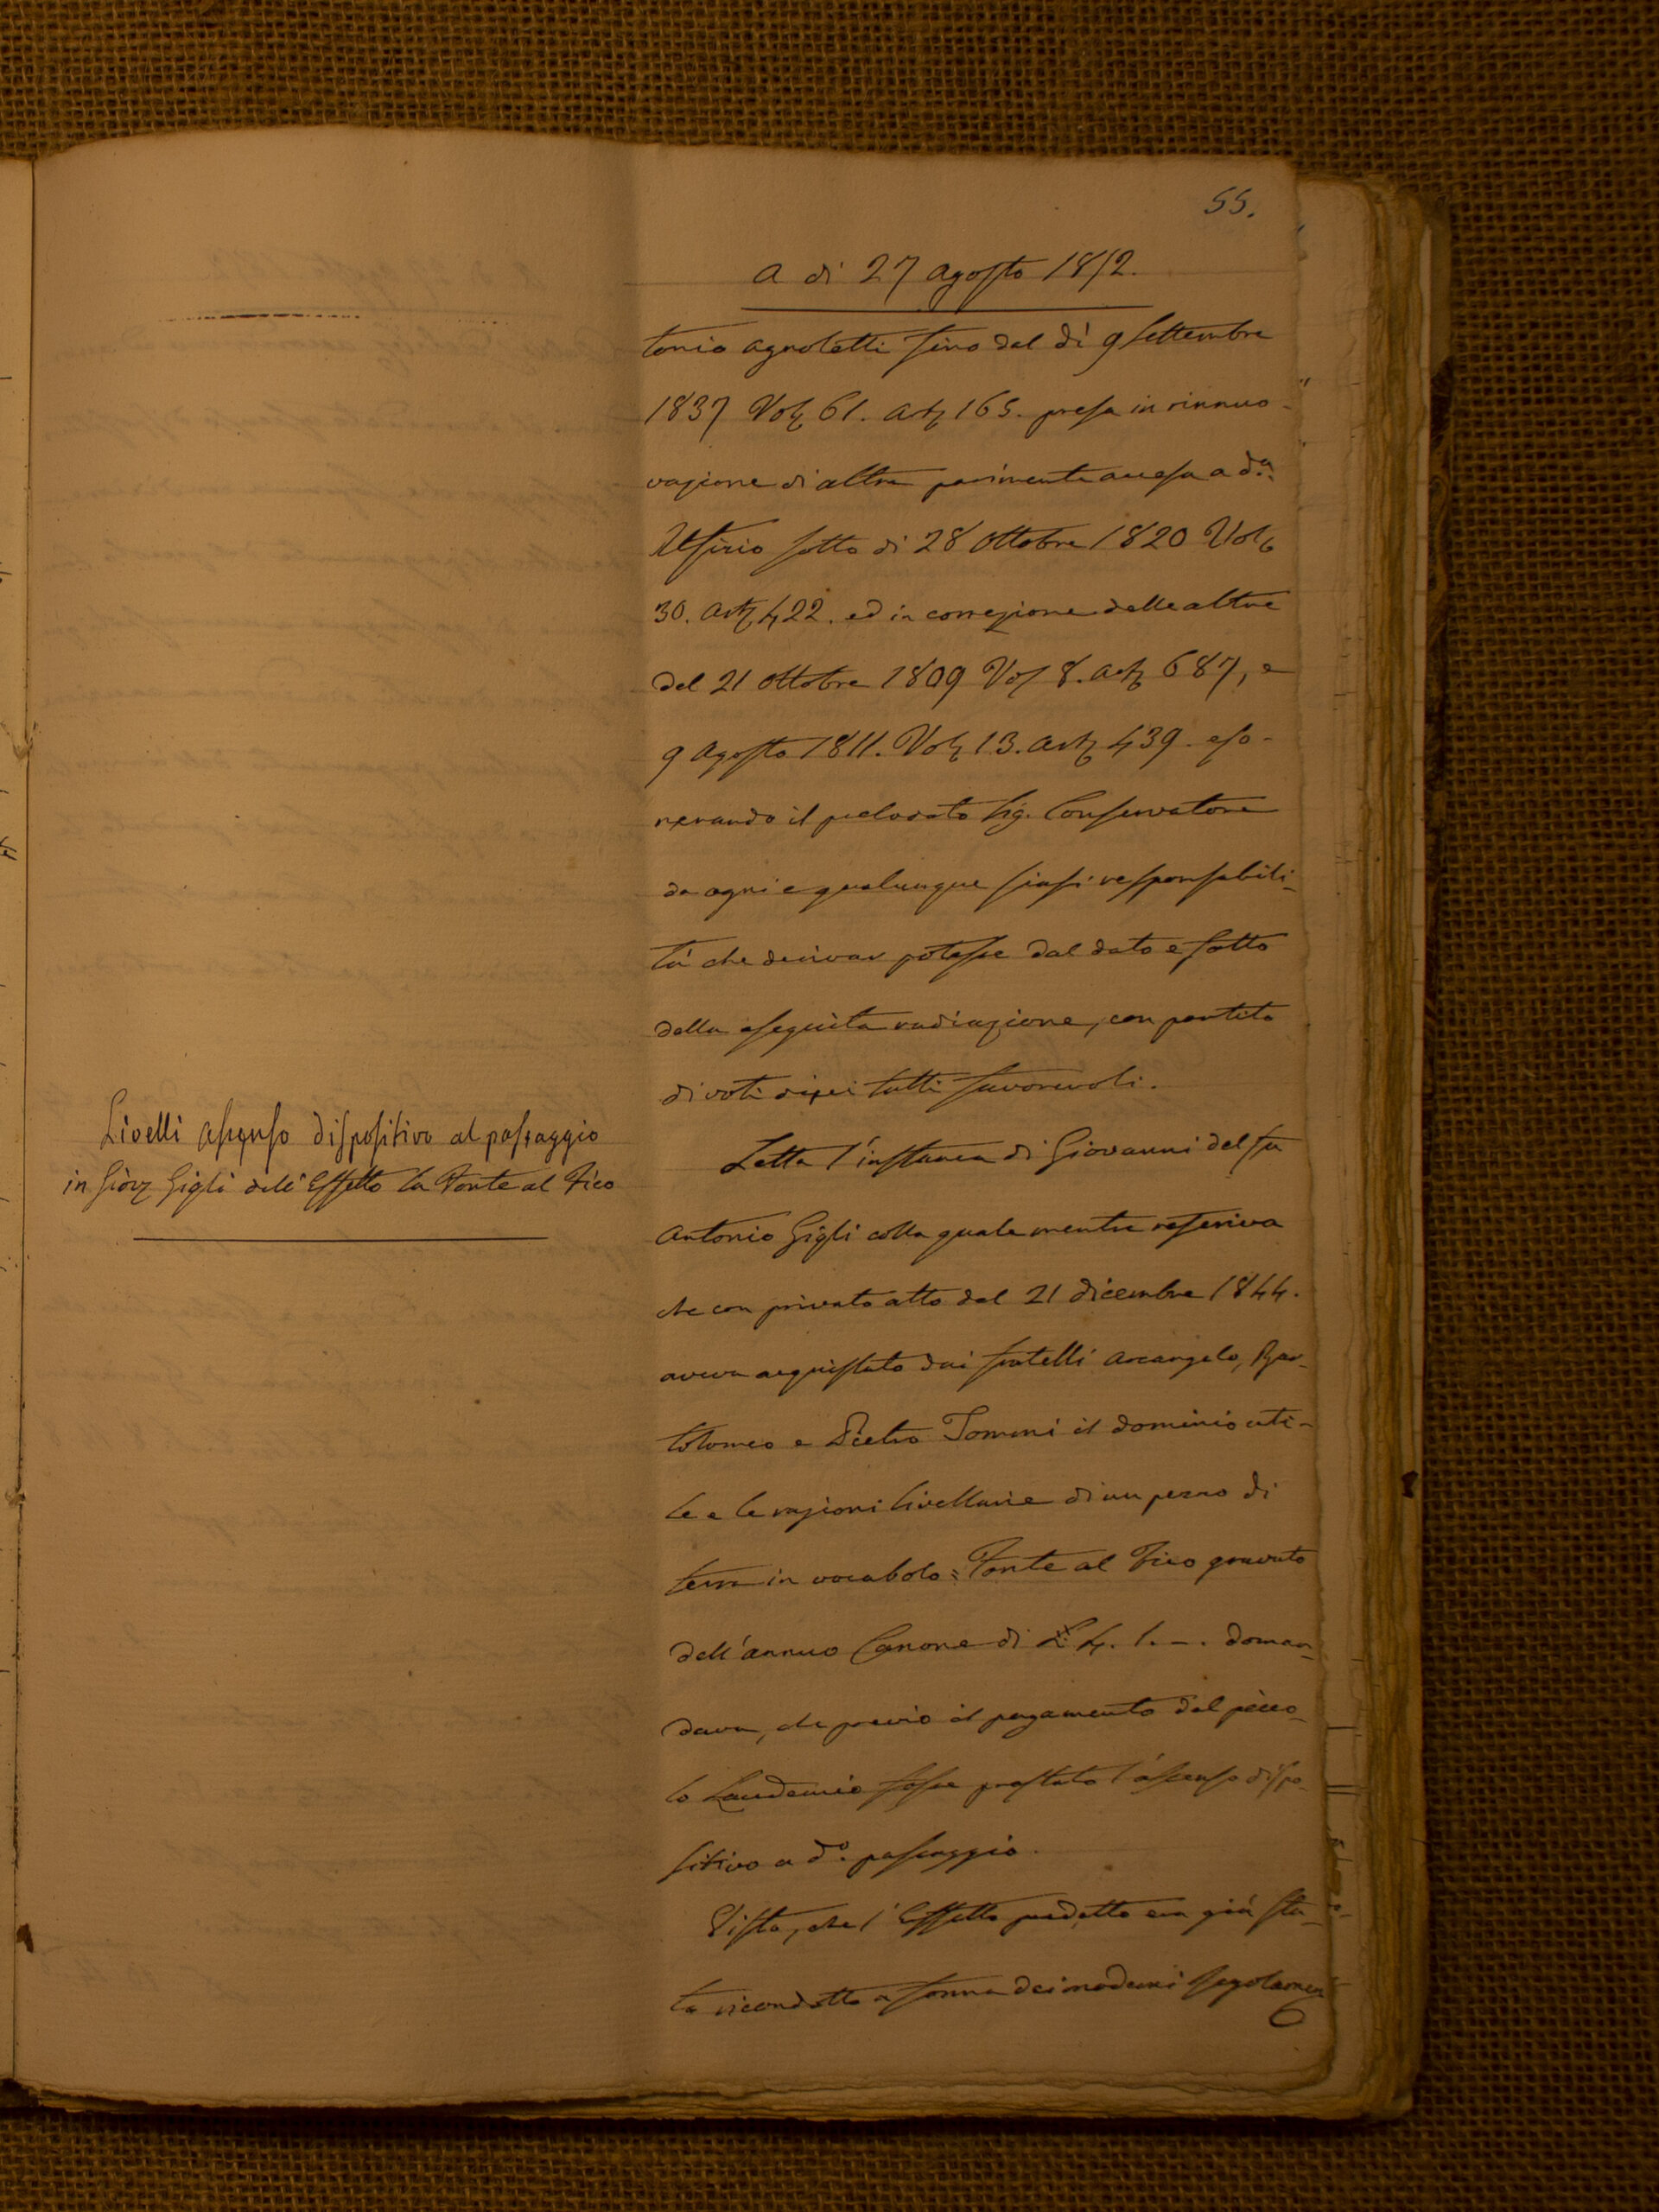 55.
A di 27 Agosto 1852.
tonio Agnoletti sino dal dì 9 Settembre
1837 Vol. 61. Art. 165. presa in rinnuo-
vazione di altra parimente accesa a d.ª
Ufizio sotto di 28 Ottobre 1820 Vol.
30. Art. 422. ed in correzione delle altre
del 21 Ottobre 1809 Vol 8. Art. 687, e
9 Agosto 1811. Vol. 13. Art. 439. eso-
nerando il prelodato Sig. Conservatore
da ogni e qualunque siasi responsabili-
tà che derivar potesse dal dato e fatto
della eseguita radiazione, con partito
di voti dieci tutti favorevoli.
Livelli Assenso dispositivo al passaggio
in Giov. Gigli dell'Effetto la Fonte al Fico
Letta l'instanza di Giovanni del fu
Antonio Gigli colla quale mentre referiva
che con privato atto del 21 dicembre 1844.
aveva acquistato dai fratelli Arcangelo, Bar-
tolomeo e Pietro Tommi il dominio uti-
le e le ragioni livellarie di un pezzo di
terra in vocabolo = Fonte al Fico gravato
dell'annuo Canone di L. 4. 1. –. doman-
dava, che previo il pagamento del picco-
lo Laudemio fosse prestato l'assenso dispo-
sitivo a d.º passaggio.
Visto, che l'Effetto predetto era già sta-
to ricondotto a forma dei moderni Regolamen